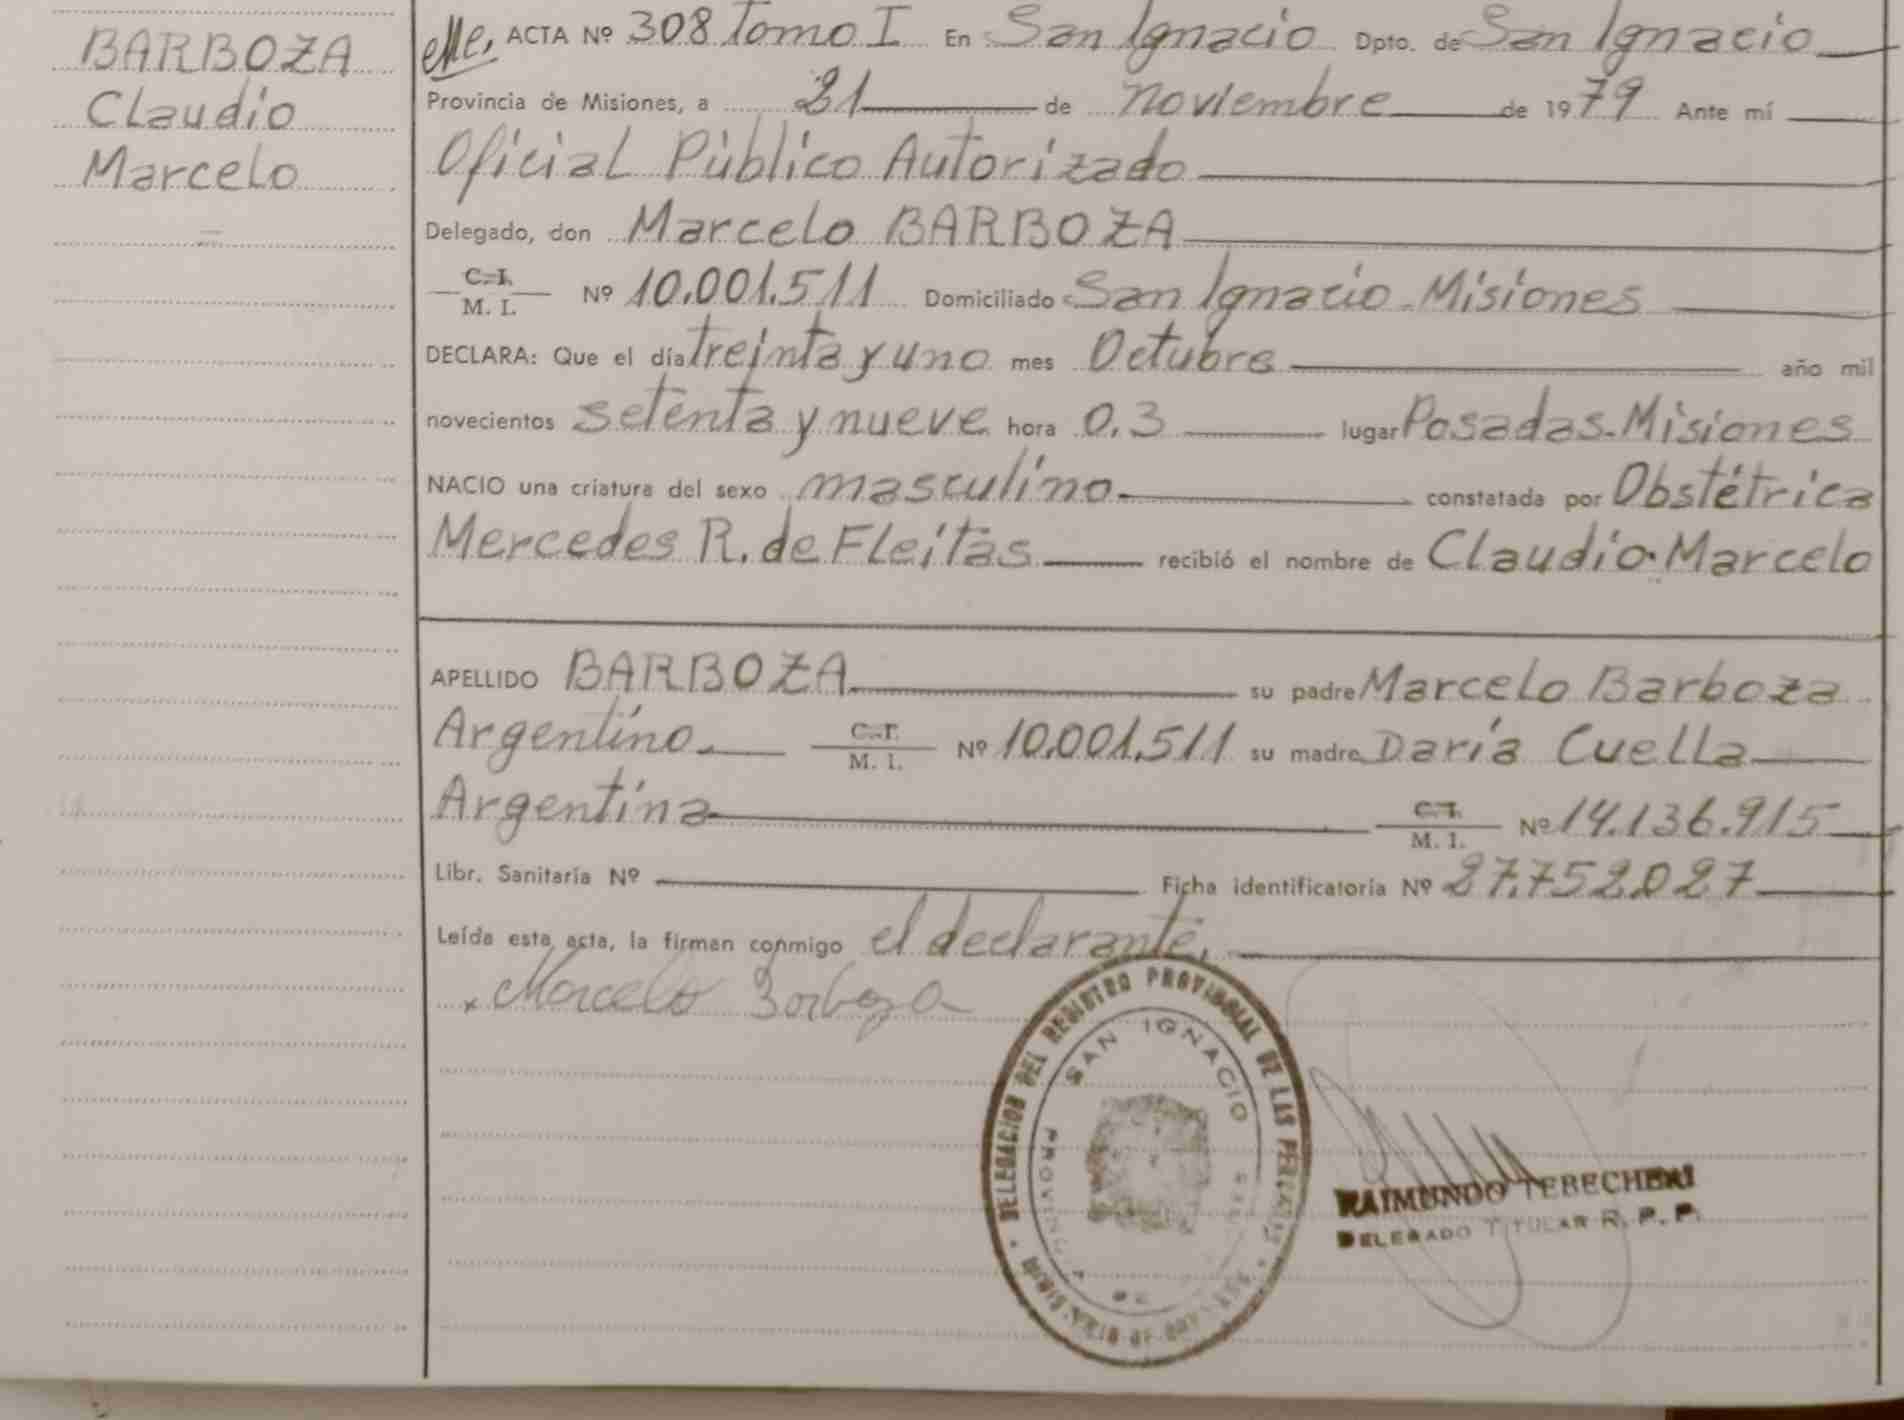 BARBOZA
Claudio
Marcelo
ACTA Nº 308 Tomo I En San Ignacio Dpto. de San Ignacio
Provincia de Misiones, a 21 de noviembre de 1979 Ante mí
Oficial Público Autorizado
Delegado, don Marcelo BARBOZA
C. I.
M. I. Nº 10.001.511 Domiciliado San Ignacio - Misiones
DECLARA: Que el día treinta y uno mes Octubre año mil
novecientos setenta y nueve hora 0.3 lugar Posadas-Misiones
NACIO una criatura del sexo masculino constatada por Obstétrica
Mercedes R. de Fleitas recibió el nombre de Claudio Marcelo
APELLIDO BARBOZA su padre Marcelo Barboza
Argentino C. I.
M. I. Nº 10.001.511 su madre Daria Cuella
Argentina C. I.
M. I. Nº 14.136.915
Libr. Sanitaria Nº Ficha identificatoria Nº 27.752.027
Leída esta acta, la firman conmigo el declarante,
x Marcelo Barboza
DELEGACION DEL REGISTRO PROVINCIAL DE LAS PERSONAS
SAN IGNACIO
PROVINCIA
RAIMUNDO TEBECHERI
DELEGADO TITULAR R. P. P.